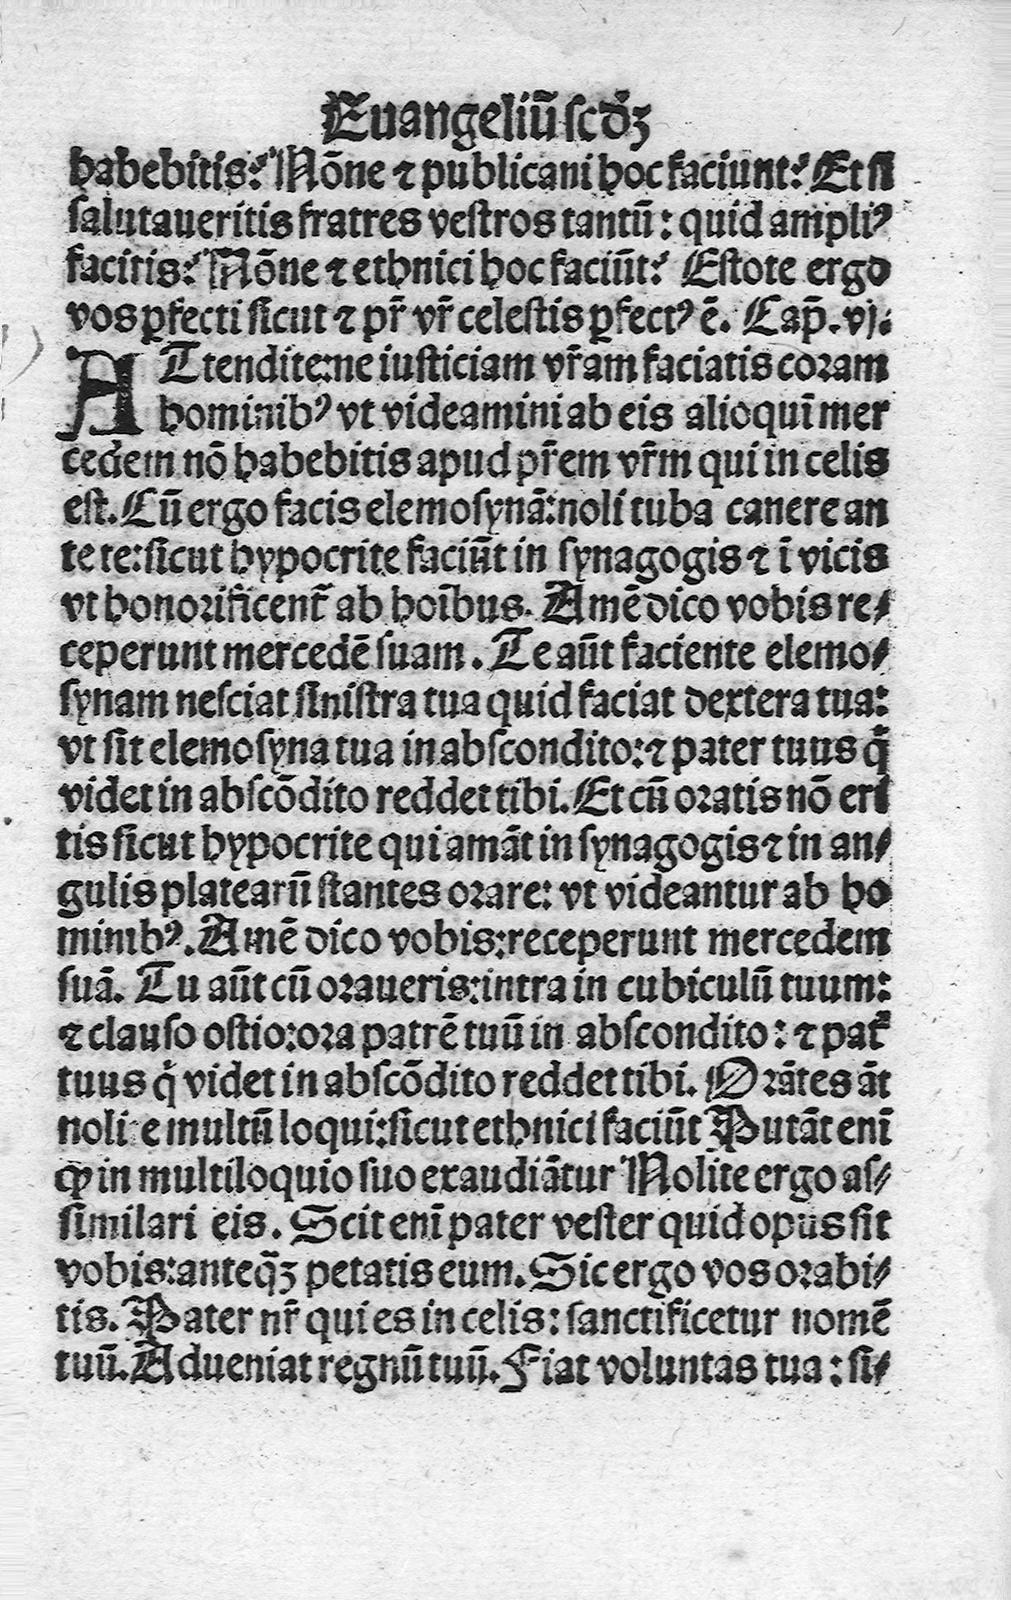 Euangeliū ſcdꝫ
habebitis? Nōne ⁊ publicani hoc faciunt? Et ſi
ſalutaueritis fratres veſtros tantū: quid ampliꝰ
facitis? Nōne ⁊ ethnici hoc faciūt? Eſtote ergo
vos ꝑfecti ſicut ⁊ pr̄ vr̄ celeſtis ꝑfectꝰ ē. Cap̄. vj.
ATtendite:ne iuſticiam vr̄am faciatis coꝛam
hominibꝰ vt videamini ab eis alioquī mer
cedem nō habebitis apud pr̄em vr̄m qui in celis
eſt. Cū ergo facis elemoſynā:noli tuba canere an
te te:ſicut hypocrite faciūt in ſynagogis ⁊ ī vicis
vt honoꝛificent᷑ ab hoībus. Amē dico vobis re⸗
ceperunt mercedē ſuam. Te aūt faciente elemo⸗
ſynam neſciat ſiniſtra tua quid faciat dextera tua:
vt ſit elemoſyna tua in abſcondito:⁊ pater tuus q̇
videt in abſcōdito reddet tibi. Et cū oꝛatis nō eri
tis ſicut hypocrite qui amāt in ſynagogis ⁊ in an⸗
gulis platearū ſtantes oꝛare: vt videantur ab ho
minibꝰ. Amē dico vobis:receperunt mercedem
ſuā. Tu aūt cū oꝛaueris:intra in cubiculū tuum:
⁊ clauſo oſtio:oꝛa patrē tuū in abſcondito: ⁊ pat᷑
tuus q̇ videt in abſcōdito reddet tibi. Oꝛātes āt
nolite multū loqui:ſicut ethnici faciūt Putāt enī
ꝙ in multiloquio ſuo exaudiātur Nolite ergo aſ⸗
ſimilari eis. Scit enī pater veſter quid opus ſit
vobis:anteq̄ꝫ petatis eum. Sic ergo vos oꝛabi⸗
tis. Pater nr̄ qui es in celis: ſanctificetur nomē
tuū. Adueniat regnū tuū. Fiat voluntas tua: ſi⸗